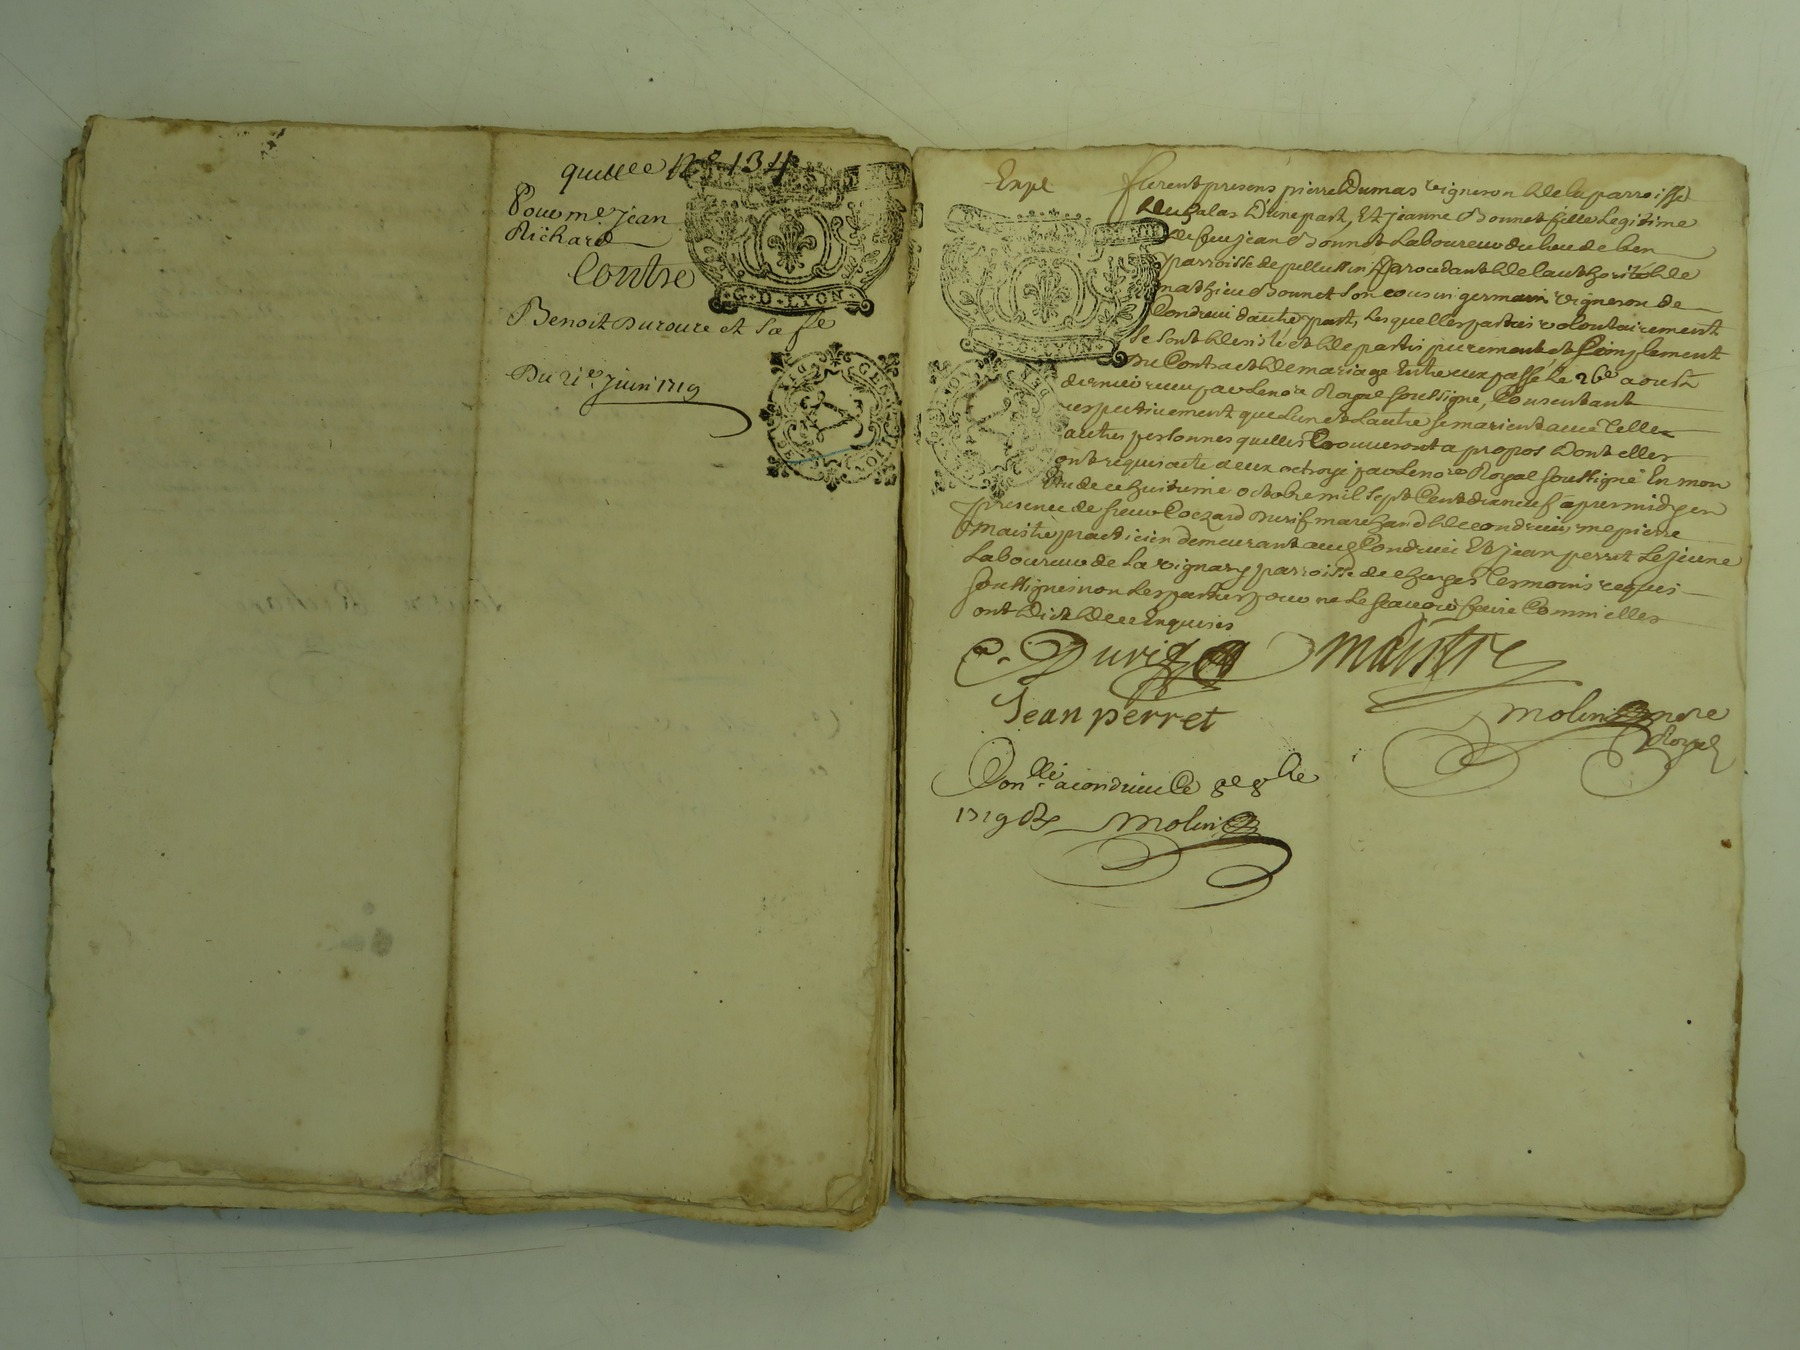 quittee No 134
Pour me jean
Richard
Contre
G·D·LYON
Benoit Duroure et sa fe
Du 21e Juin 1719
Expé
furent presens pierre Dumas vigneron de la parroisse
d'une part, Et jeanne Bonnet fille Legitime
de feu jean Bonnet Laboureur du lieu de
parroisse de pellussin procedant de l'authorité de
mathieu Bonnet son cousin germain vigneron de
Condrieu d'autre part, Lesquelles parties volontairement
se sont desisté et departis purement et simplement
LYON
Du Contract de mariage Entre eux passé Le 26e aoust
dernier receu par Le nore Royal soussigné, Consentant
respectivement que L'un et L'autre se marient avec telles
autres personnes quelles trouveront a propos Dont elles
ont requis acte a eux octroyé par Le nore Royal soussigné En mon
etude ce huitieme octobre mil sept Cent dix neuf apres midy en
presence de sieur Durif marchand de condrieu, me pierre
Maistre practicien demeurant aud Condrieu Et jean perret Le jeune
Laboureur de La vignary parroisse de tesmoins requis
soussignés non Les parties pour ne Le scavoir faire Comm'elles
ont dict de ce Enquises
Durif
Maistre
Jean perret
Molin nore
Royal
Conllé a condrieu Ce 8e 8bre
1719
Molin